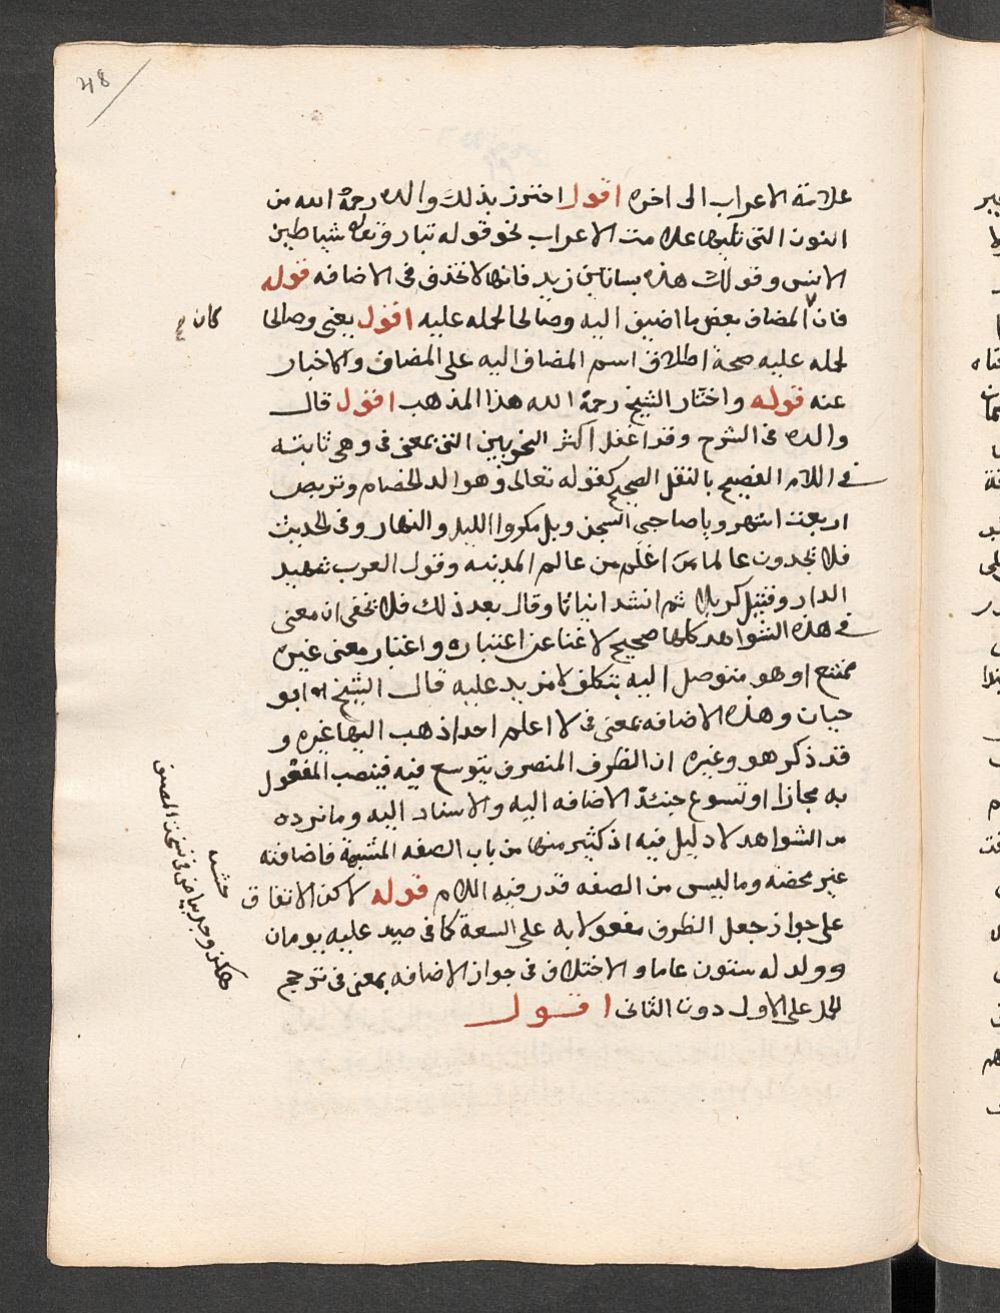 48
علامة الاعراب الى اخره اقول احترز بذلك والده رحمة الله من
النون التى تليها علامت الاعراب نحو قوله تبار وتعالى شياطين
الانس وقولك هذه بساتين زيد فانها لا تحذف فى الاضافه قوله
فان المضاف بعض ما اضيف اليه وصالحا لحمله عليه اقول يعنى وصالحا
كان
لحمله عليه صحة اطلاق اسم المضاف اليه على المضاف والاخبار
عنه قوله واختار الشيخ رحمة الله هذا المذهب اقول قال
والده فى الشرح وقد اغفل اكثر النحويين التى بمعنى فى وهى ثابتة
فى الكلام الفصيح بالنقل الصحيح كقوله تعالى وهو الد الخصام وتربص
اربعت اشهر ويا صاحبى السجن وبل مكروا الليل والنهار وفى الحديث
فلا تجدون عالما من اعلم من عالم المدينه وقول العرب شهيد
الدار وقتيل كربلا ثم انشد ابياتا وقال بعد ذلك فلا يخفى ان معنى
فى هذه الشواهد كلها صحيح لا غنا عن اعتباره واعتبار معنى غيره
ممتنع او هو متوصل اليه بتكلف لا مزيد عليه قال الشيخ ابو
حيان وهذه الاضافه بمعنى فى لا اعلم احدا ذهب اليها غيره و
قد ذكر هو وغيره ان الظرف المتصرف يتوسع فيه فينصب المفعول
به مجازا او تسوع حينئذ الاضافه اليه والاسناد اليه وما نرده
من الشواهد لا دليل فيه اذ كثير منها من باب الصفه المشبهة فاضافته
غير محضه وما ليس من الصفه قدر فيه اللام قوله لاكن الاتفاق
على جواز جعل الظرف مفعولا به على السعة كما فى صيد عليه يومان
وولد له ستون عاما والاختلاف فى جواز الاضافه بمعنى فى ترجح
لحمل على الاول دون الثانى اقول
هكذ وجد بياض فى نسخة المصنف